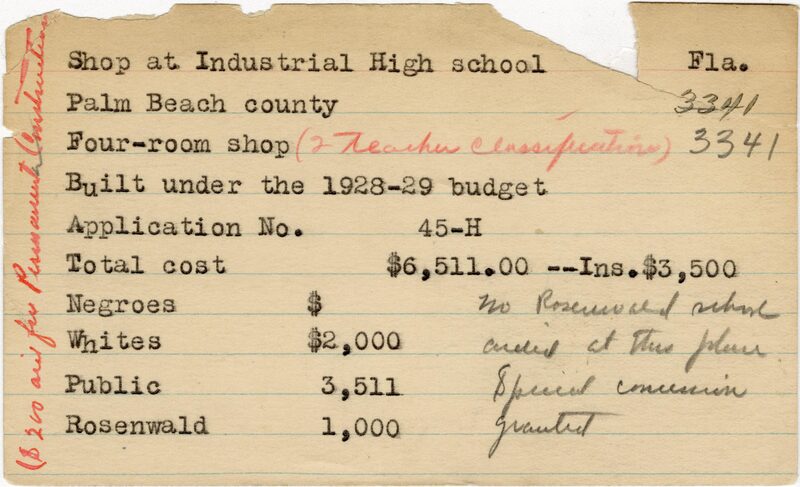 Shop at Industrial High school Fla.
Palm Beach county 3341
Four-room shop (2 Teacher Classification) 3341
Built under the 1928-29 budget
Application No. 45-H
Total cost $6,511.00 --Ins.$3,500
Negroes $ no Rosenwald school
Whites $2,000 aided at this place
Public 3,511 Special concession
Rosenwald 1,000 granted
($200 aid for Permanent Construction